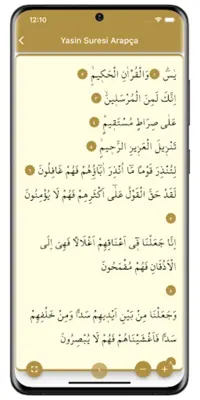 12:10
Yasin Suresi Arapça
يٰسٓ ۚ وَالْقُرْاٰنِ الْحَك۪يمِۙ
اِنَّكَ لَمِنَ الْمُرْسَل۪ينَۙ
عَلٰى صِرَاطٍ مُسْتَق۪يمٍۜ
تَنْز۪يلَ الْعَز۪يزِ الرَّح۪يمِۙ
لِتُنْذِرَ قَوْمًا مَٓا اُنْذِرَ اٰبَٓاؤُ۬هُمْ فَهُمْ غَافِلُونَ
لَقَدْ حَقَّ الْقَوْلُ عَلٰٓى اَكْثَرِهِمْ فَهُمْ لَا يُؤْمِنُونَ
اِنَّا جَعَلْنَا ف۪ٓي اَعْنَاقِهِمْ اَغْلَالًا فَهِيَ اِلَى
الْاَذْقَانِ فَهُمْ مُقْمَحُونَ
وَجَعَلْنَا مِنْ بَيْنِ اَيْد۪يهِمْ سَدًّا وَمِنْ خَلْفِهِمْ
سَدًّا فَاَغْشَيْنَاهُمْ فَهُمْ لَا يُبْصِرُونَ